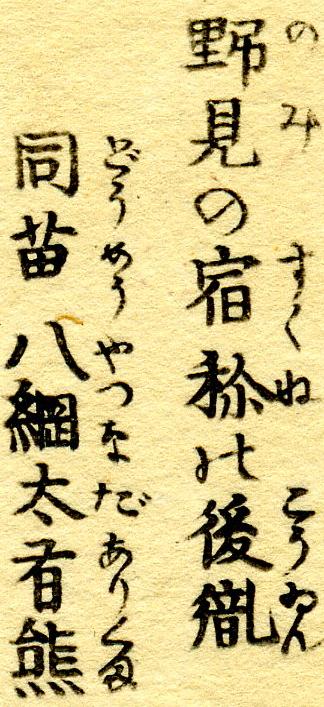 のみ すくね こうゐん
野見の宿祢の後胤
どうめう やつなだありくま
同苗 八綱太有熊